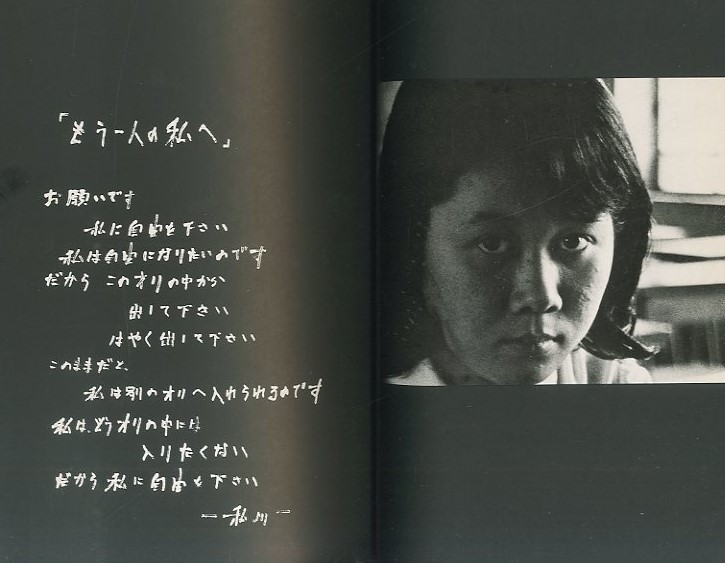 「もう一人の私へ」
お願いです
私に自由を下さい
私は自由になりたいのです
だから このオリの中から
出して下さい
はやく出して下さい
このままだと、
私は別のオリへ入れられるのです
私は、もうオリの中には
入りたくない
だから 私に自由を下さい